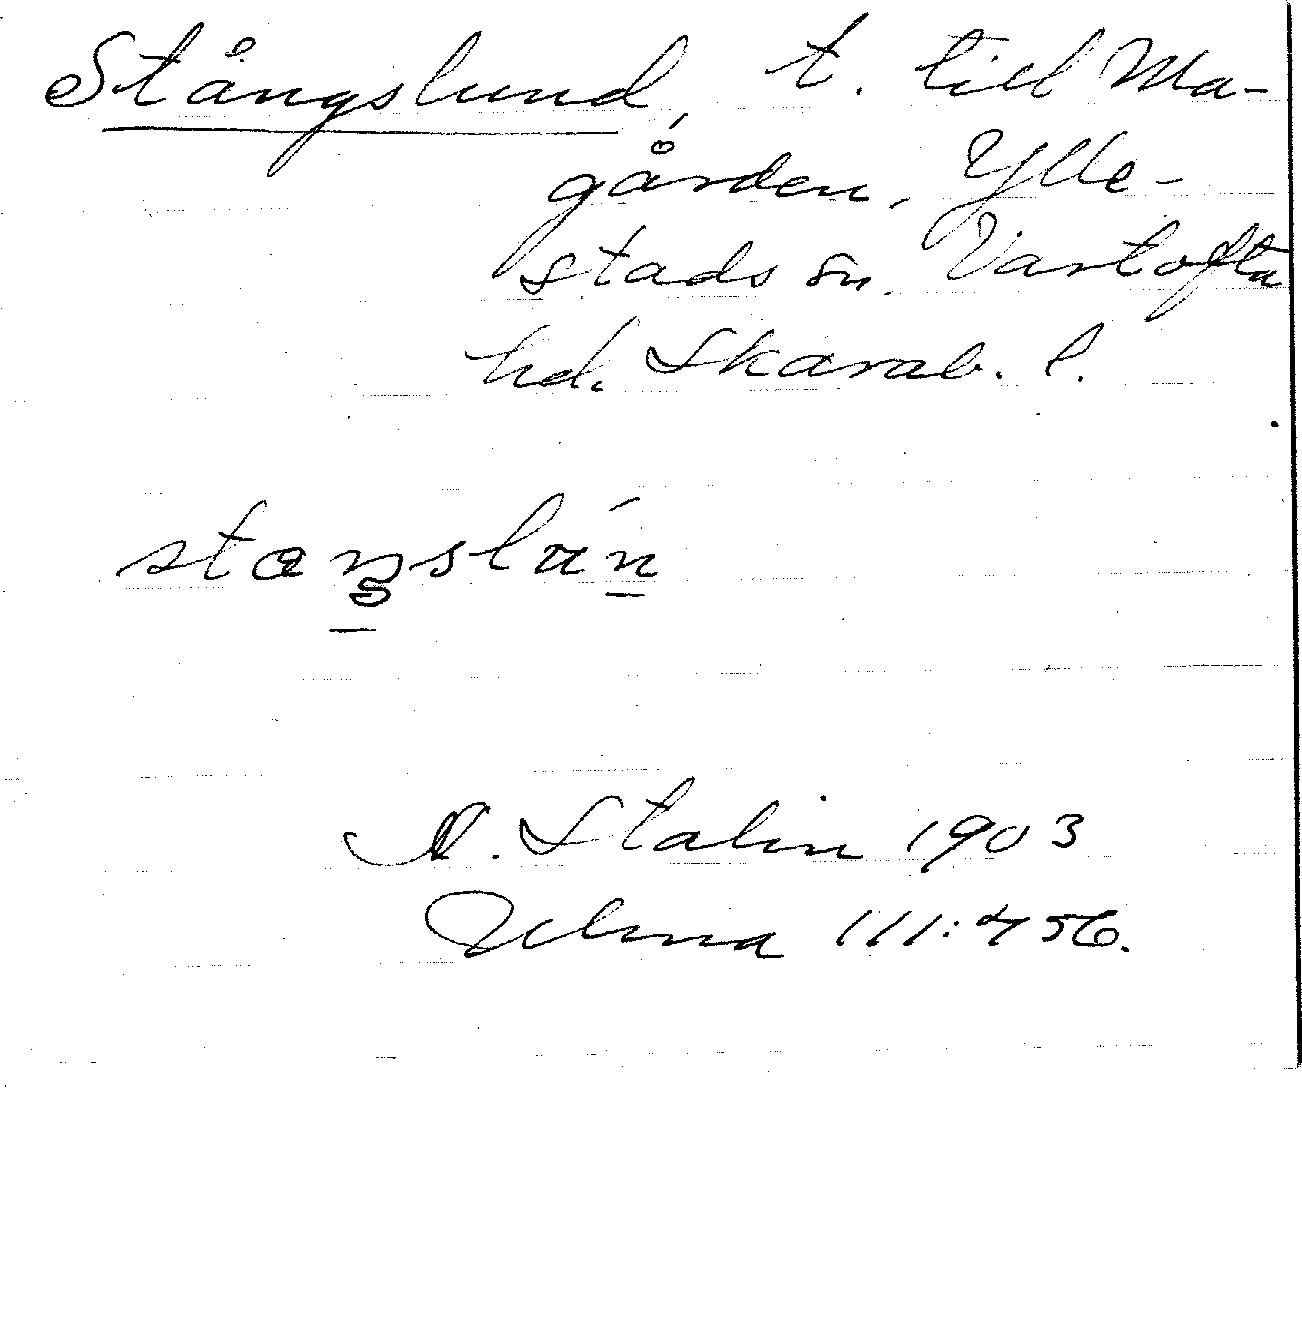 Stångslund, t. till Ma-
gården, Ylle-
stads sn. Vartofta
hd. Skarab. l.
N. Stalin 1903
111:456.